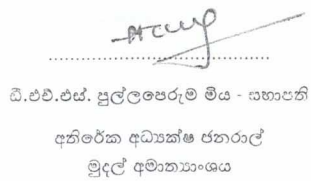 ඩී.එච්.එස්. පුල්ලපෙරුම මිය - සභාපති
අතිරේක අධ්‍යක්ෂ ජනරාල්
මුදල් අමාත්‍යාංශය